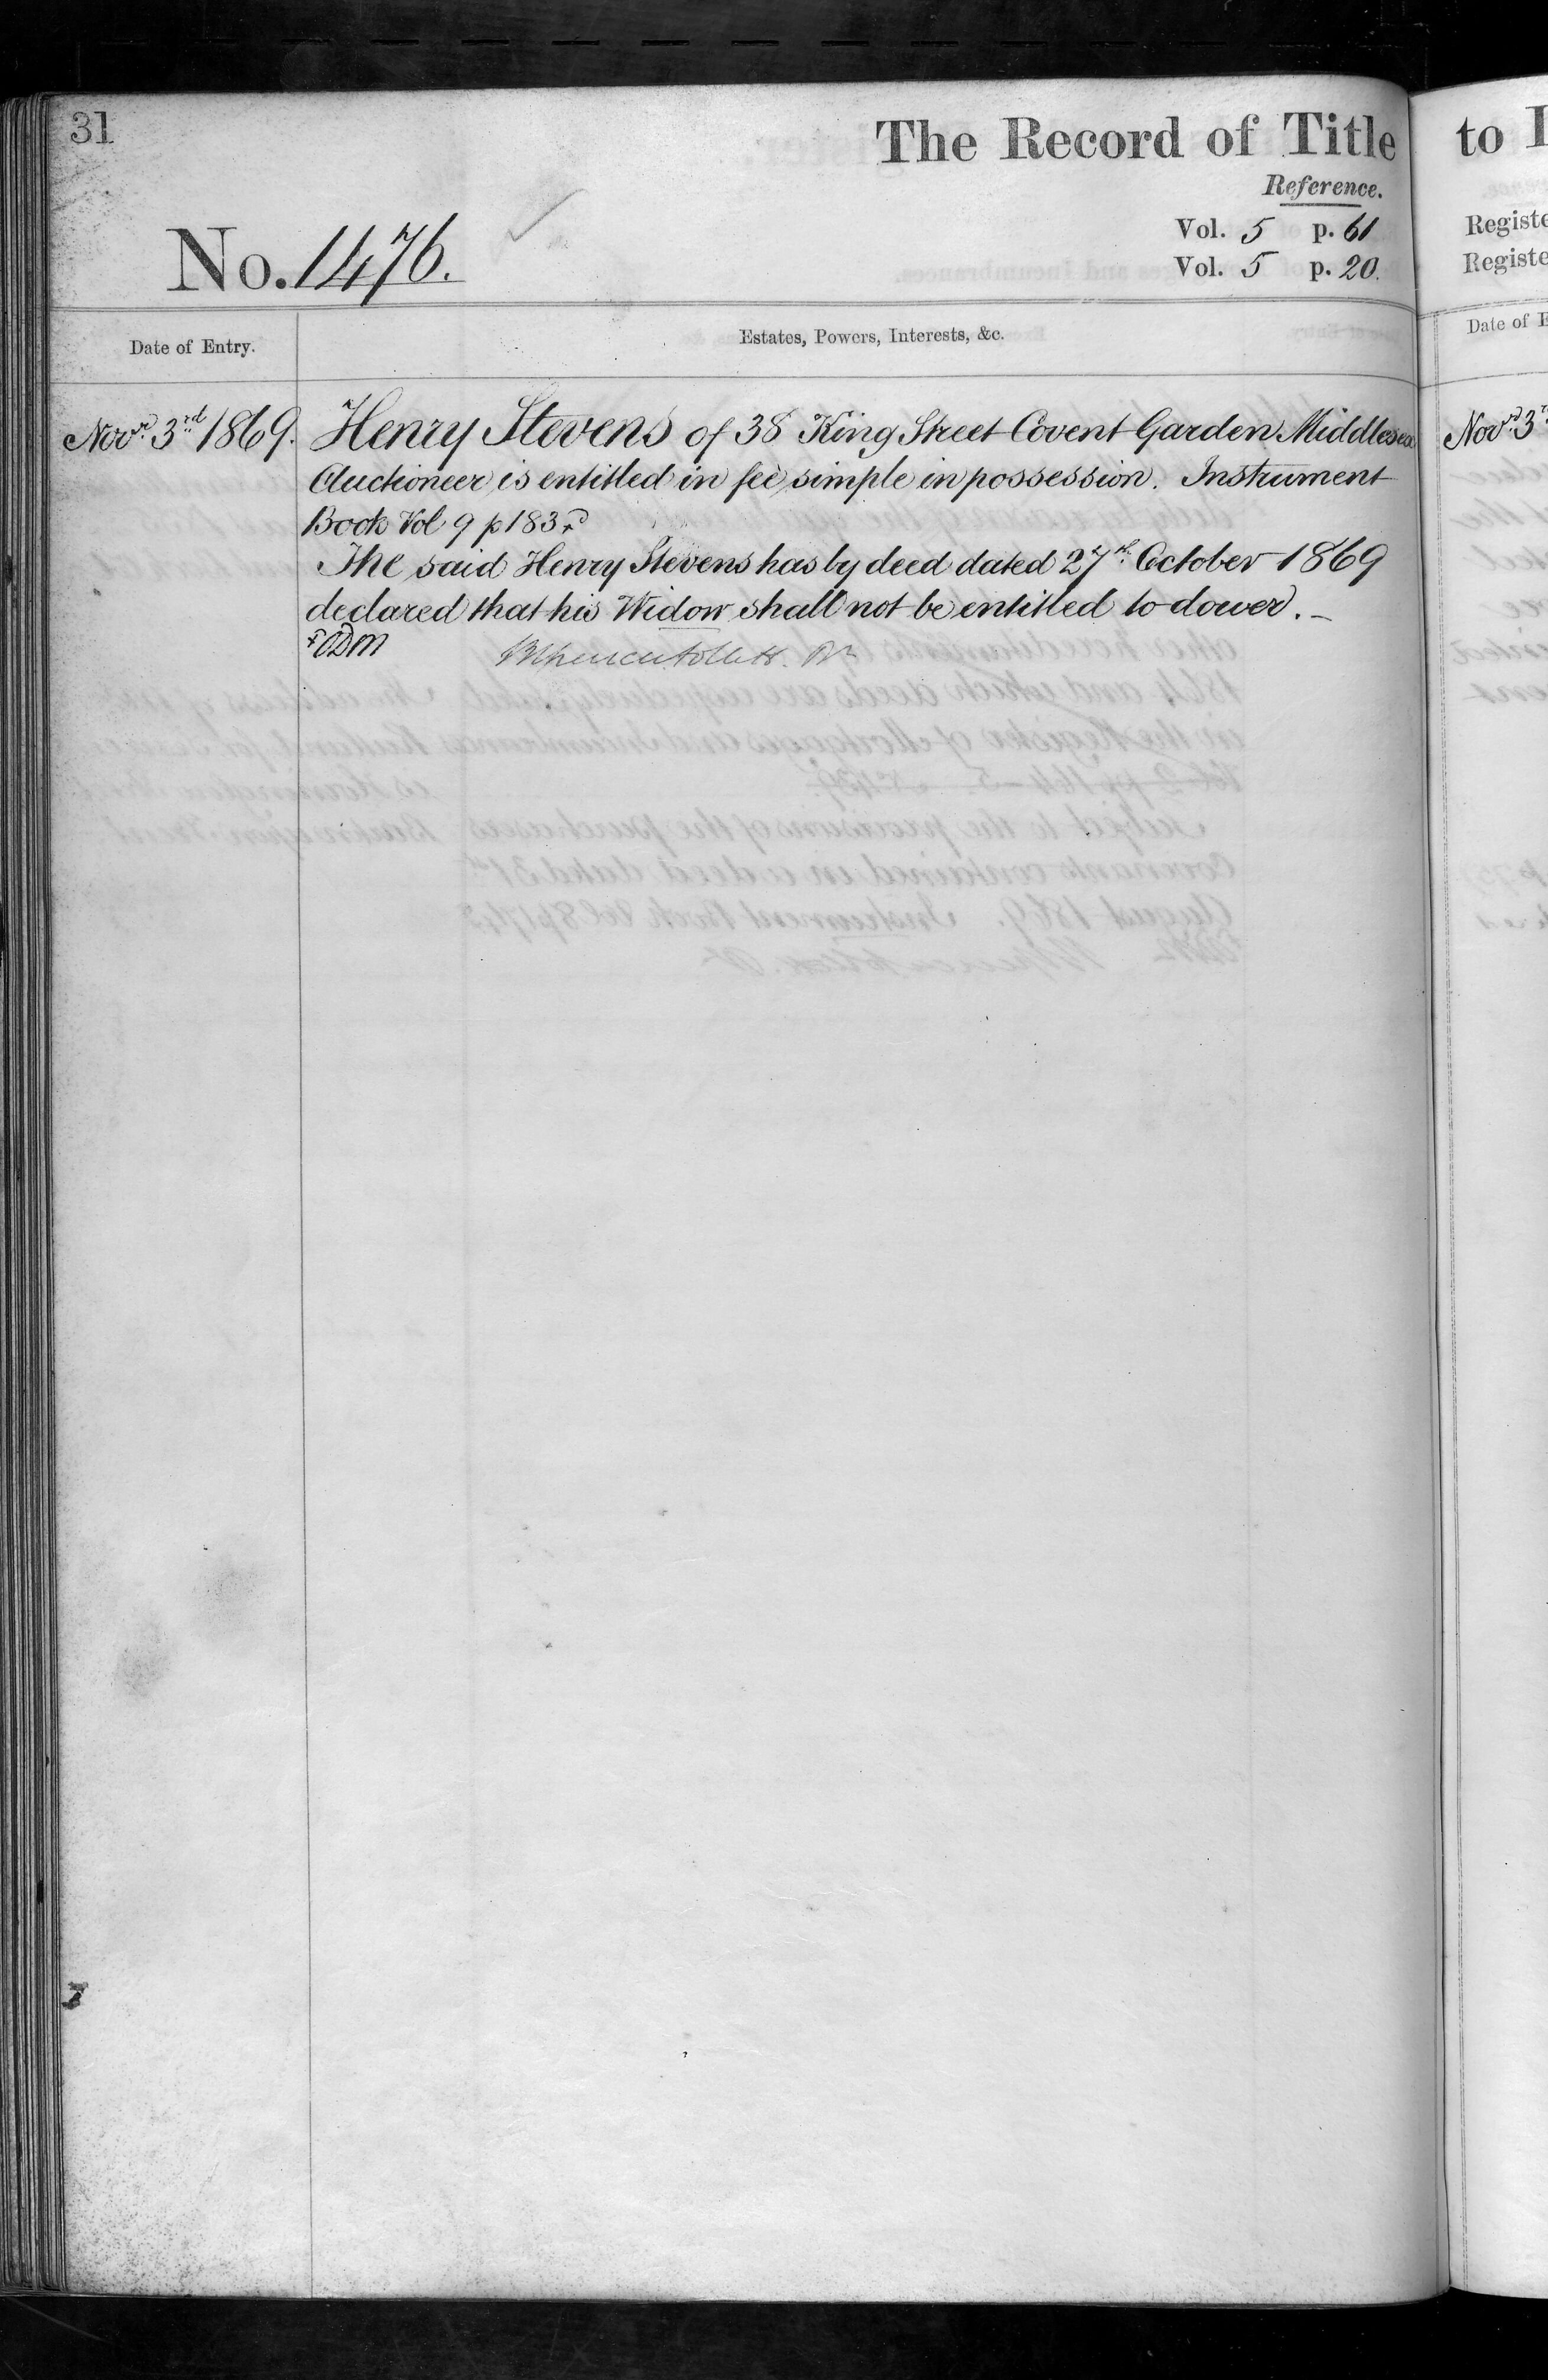 31
The Record of Title
Reference.
Vol. 5 p. 61
Vol. 5 p. 20.
No. 1476.
Date of Entry.
Estates, Powers, Interests, &c.
Novr. 3rd 1869. Henry Stevens of 38 King Street Covent Garden Middlesex
Auctioneer is entitled in fee simple in possession. Instrument
Book Vol 9 p 183.
The said Henry Stevens has by deed dated 27th October 1869
declared that his Widow shall not be entitled to dower. –
to
Registe
Registe
Date of E
Novr 3r